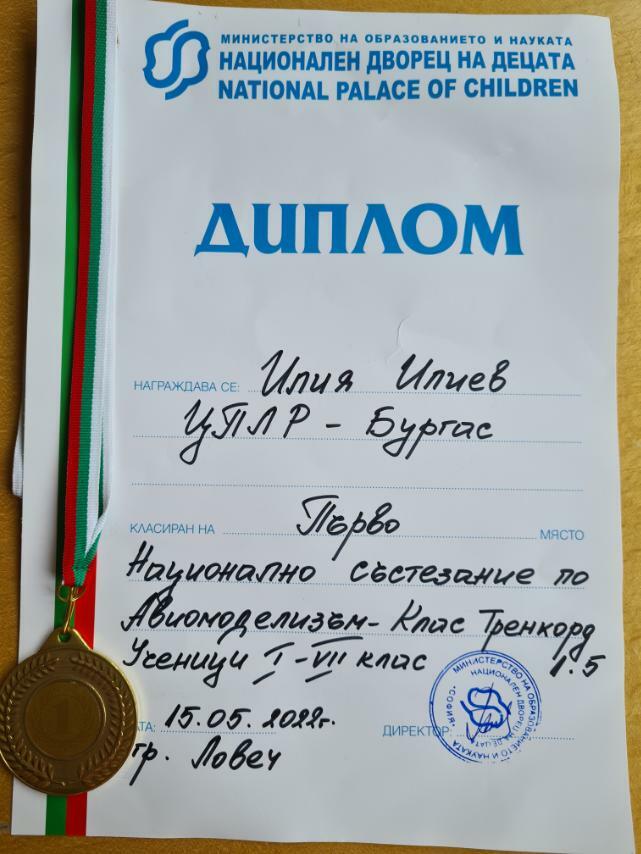 МИНИСТЕРСТВО НА ОБРАЗОВАНИЕТО И НАУКАТА
НАЦИОНАЛЕН ДВОРЕЦ НА ДЕЦАТА
NATIONAL PALACE OF CHILDREN
ДИПЛОМ
НАГРАЖДАВА СЕ: Илия Илиев
ЦПЛР - Бургас
КЛАСИРАН НА Първо МЯСТО
Национално състезание по
Авиомоделизъм - Клас Тренкорд
Ученици I - VII клас 1.5
АТА: 15.05.2022г. ДИРЕКТОР:
гр. Ловеч
МИНИСТЕРСТВО НА ОБРАЗОВАНИЕТО И НАУКАТА
НАЦИОНАЛЕН ДВОРЕЦ НА ДЕЦАТА
СОФИЯ